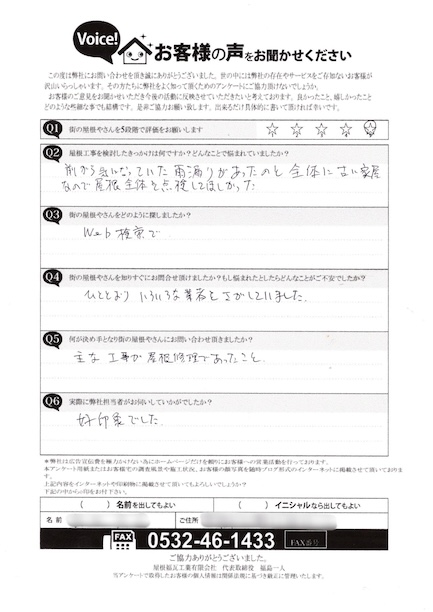 Voice!
お客様の声をお聞かせください
この度は弊社にお問い合わせを頂き誠にありがとうございました。世の中には弊社の存在やサービスをご存知ないお客様が
沢山いらっしゃいます。その方たちに弊社をよく知って頂くためのアンケートにご協力頂けないでしょうか。
お客様のご意見をお聞かせいただき今後の活動に反映させていただきたいと考えております。良かったこと、嬉しかったこと
どのような些細な事でも結構です。是非ご協力お願い致します。出来るだけ具体的に書いて頂ければ幸いです。
Q1 街の屋根やさんを5段階で評価をお願いします ☆ ☆ ☆ ☆ ☆
Q2 屋根工事を検討したきっかけは何ですか?どんなことで悩まれていましたか?
前から気になっていた雨漏りがあったのと全体に古い家屋
なので屋根全体を点検してほしかった
Q3 街の屋根やさんをどのように探しましたか?
Web検索で
Q4 街の屋根やさんを知りすぐにお問合せ頂けましたか?もし悩まれたとしたらどんなことがご不安でしたか?
ひととおりいろいろな業者をさがしていました。
Q5 何が決め手となり街の屋根やさんにお問い合わせ頂きましたか?
主な工事が屋根修理であったこと。
Q6 実際に弊社担当者がお伺いしていかがでしたか?
好印象でした。
*弊社は広告宣伝費を極力かけない為にホームページだけを頼りにお客様への営業活動を行っております。
本アンケート用紙またはお客様宅の調査風景や施工状況、お客様の顔写真を随時ブログ形式のインターネットに掲載させて頂いております。
上記内容をインターネットや印刷物に掲載させて頂いてもよろしいでしょうか?
下記の中から○印をお付け下さい。
( ) 名前を出してもよい ( ) イニシャルなら出してもよい
名前 ご住所
FAX 0532-46-1433 FAX番号
ご協力ありがとうございました。
屋根福瓦工業有限会社 代表取締役 福島一人
当アンケートで取得したお客様の個人情報は関係法規に基づき厳正に管理いたします。